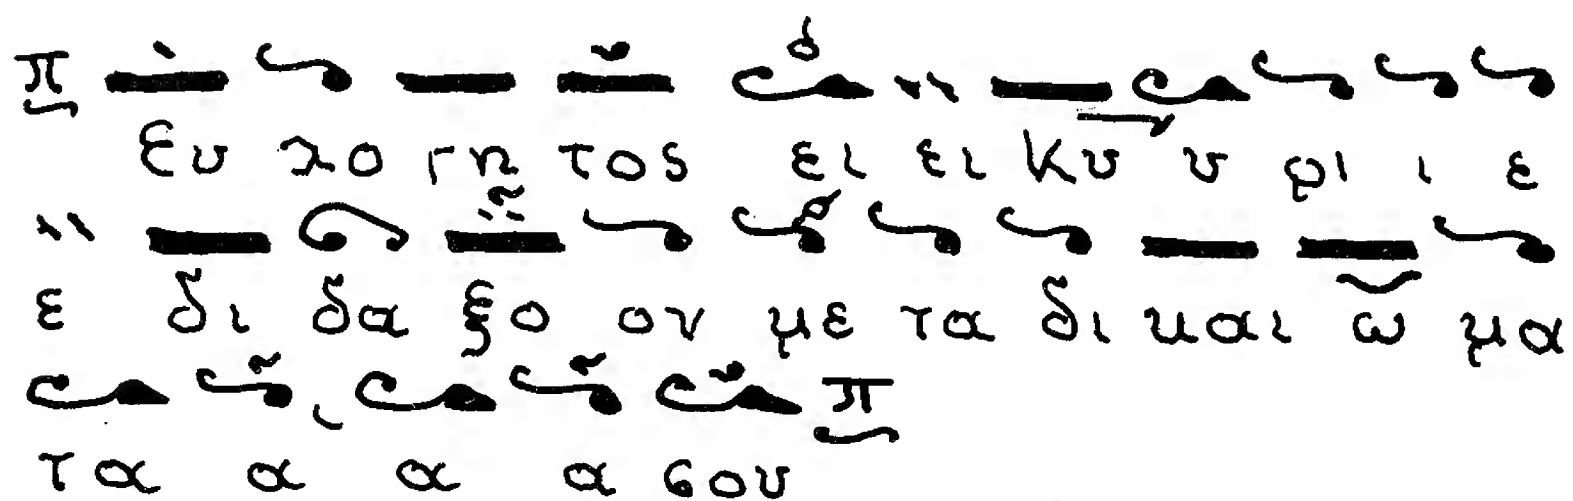 π
Ευ λο γη τος ει ει Κυ υ ρι ι ε
ε δι δα ξο ον με τα δι και ω μα
π
τα α α α σου